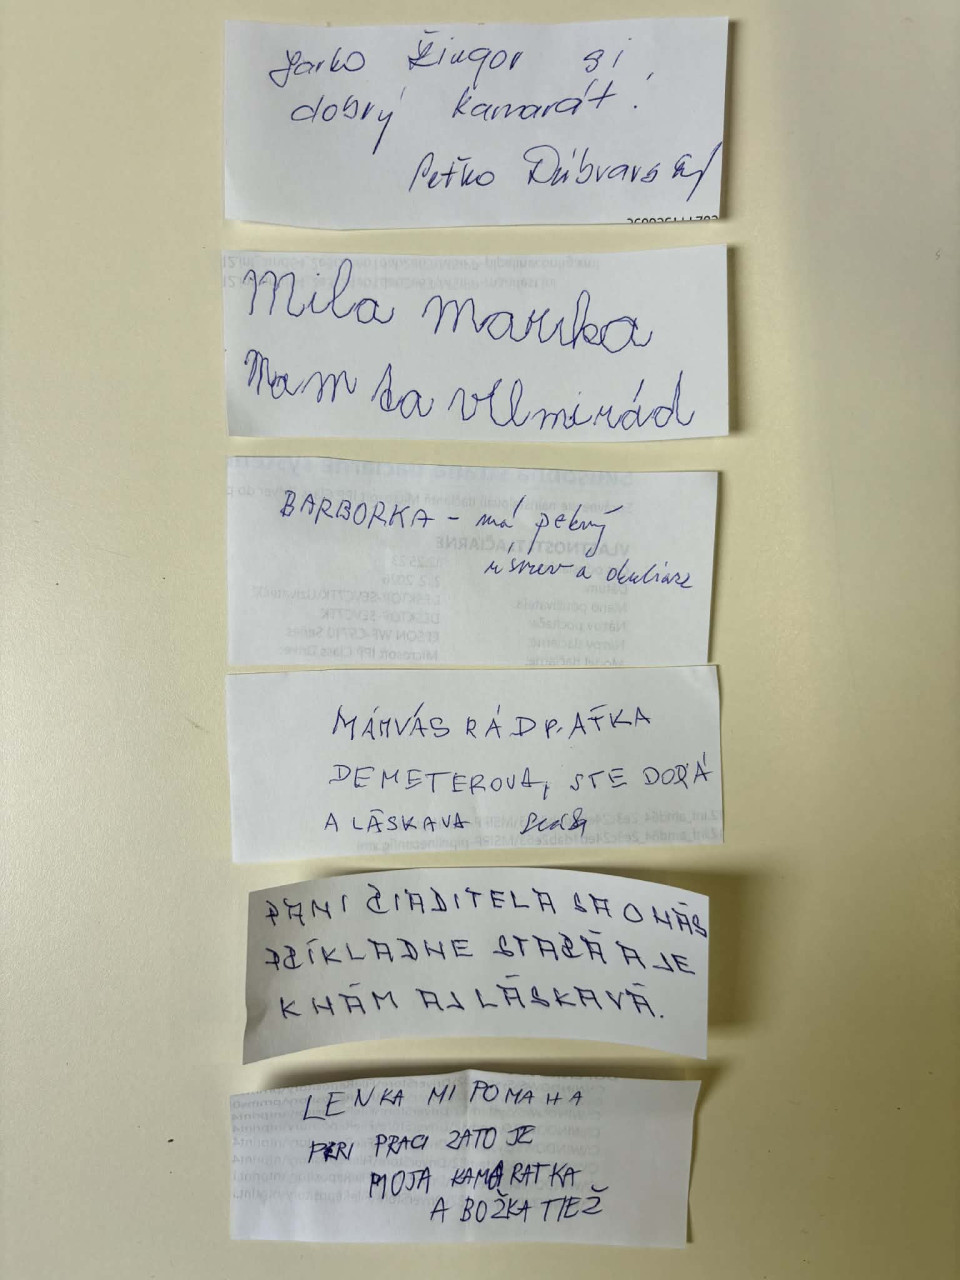 Jarko Žingor si
dobrý kamarát!
Peťko Dúbravský
Mila Marika
Mam ta vElmi rád
BARBORKA - má pekný
úsmev a okuliare
MÁM VÁS RÁD P. AŤKA
DEMETEROVA, STE DOBRÁ
A LÁSKAVA
PANI RIADITELA SA O NÁS
PRÍKLADNE STARÁ A JE
K NÁM AJ LÁSKAVÁ.
LENKA MI POMAHA
PRI PRACI ZATO JE
MOJA KAMARATKA
A BOŽKA TIEŽ